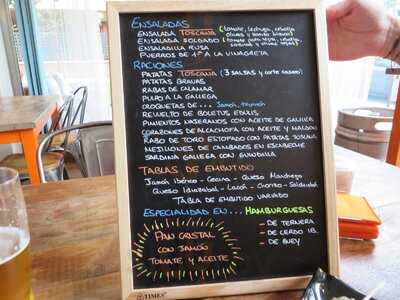 ENSALADAS
ENSALADA TOSCANA (tomate, lechuga, cebolla,
ENSALADA SOLDADO (tomate
ENSALADILLA RUSA
PUERROS DE 1ª A LA VINAGRETA
RACIONES
PATATAS TOSCANA (3 SALSAS y
PATATAS BRAVAS
RABAS DE CALAMAR
PULPO A LA GALLEGA
CROQUETAS DE... Jamón,
REVUELTO DE BOLETUS EDULIS
PIMIENTOS NAJERANOS CON ACEITE DE
CORAZONES DE ALCACHOFA CON ACEITE Y MALDON
RABO DE TORO ESTOFADO CON PATATAS TOSCANA
MEJILLONES DE CAMBADOS EN ESCABECHE
SARDINA GALLEGA CON GUINDILLA
TABLAS DE EMBUTIDO
Jamón Ibérico - Cecina - Queso Manchego
Queso Idiazabal - Lacón - Chorizo - Salchichón
TABLA DE EMBUTIDO VARIADO
ESPECIALIDAD EN... HAMBURGUESAS
- DE TERNERA
- DE CERDO IB.
- DE BUEY
PAN CRISTAL
CON JAMÓN
TOMATE Y ACEITE
TIMES